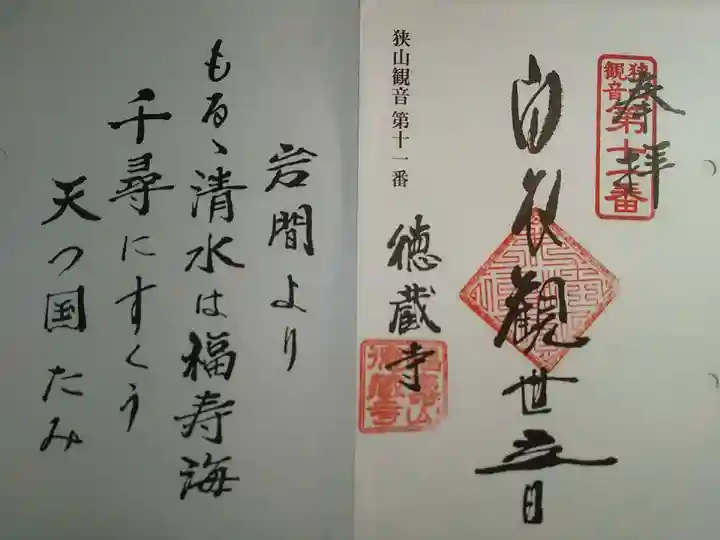 狭山観音第十一番
奉拝
白衣観世音
狭山観音 第十一番
徳蔵寺
岩間より
もるゝ清水は福寿海
千尋にすくう
天つ国たみ